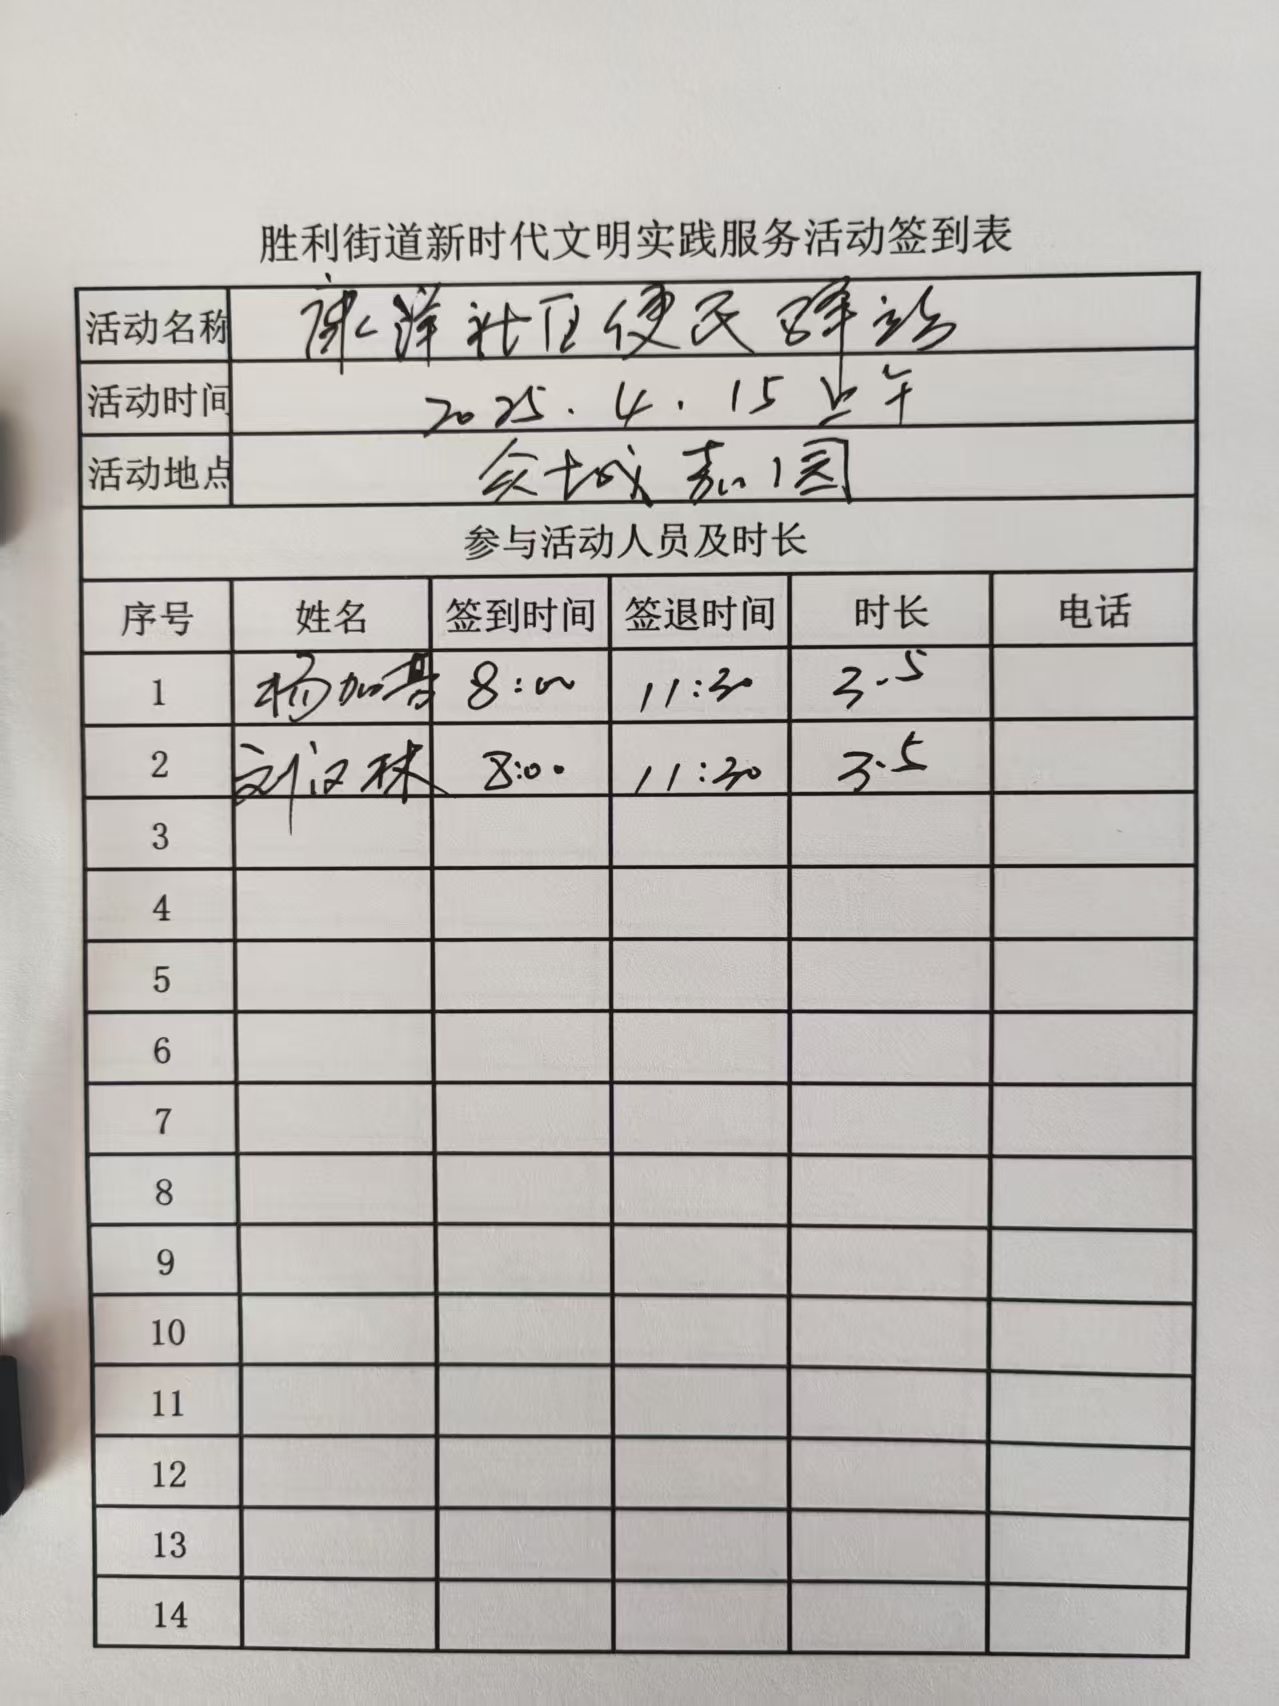 胜利街道新时代文明实践服务活动签到表
活动名称 康洋社区便民驿站
活动时间 2025.4.15上午
活动地点 众城嘉园
参与活动人员及时长
序号 姓名 签到时间 签退时间 时长 电话
1 杨加 8:00 11:30 3.5
2 刘汉林 8:00 11:30 3.5
3
4
5
6
7
8
9
10
11
12
13
14